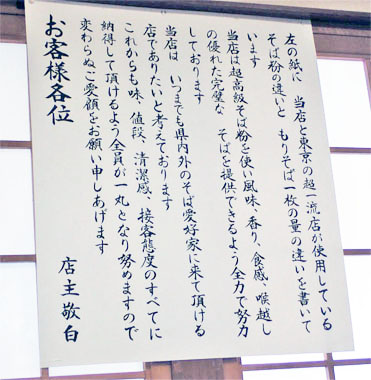 左の紙に 当店と東京の超一流店が使用している
そば粉の違いと もりそば一枚の量の違いを書いて
います
当店は超高級そば粉を使い風味、香り、食感、喉越し
の優れた完璧な そばを提供できるよう全力で努力
しております
当店は いつまでも県内外のそば愛好家に来て頂ける
店でありたいと考えております
これからも味、値段、清潔感、接客態度のすべてに
納得して頂けるよう全員が一丸となり努めますので
変わらぬご愛顧をお願い申しあげます
お客様各位
店主敬白